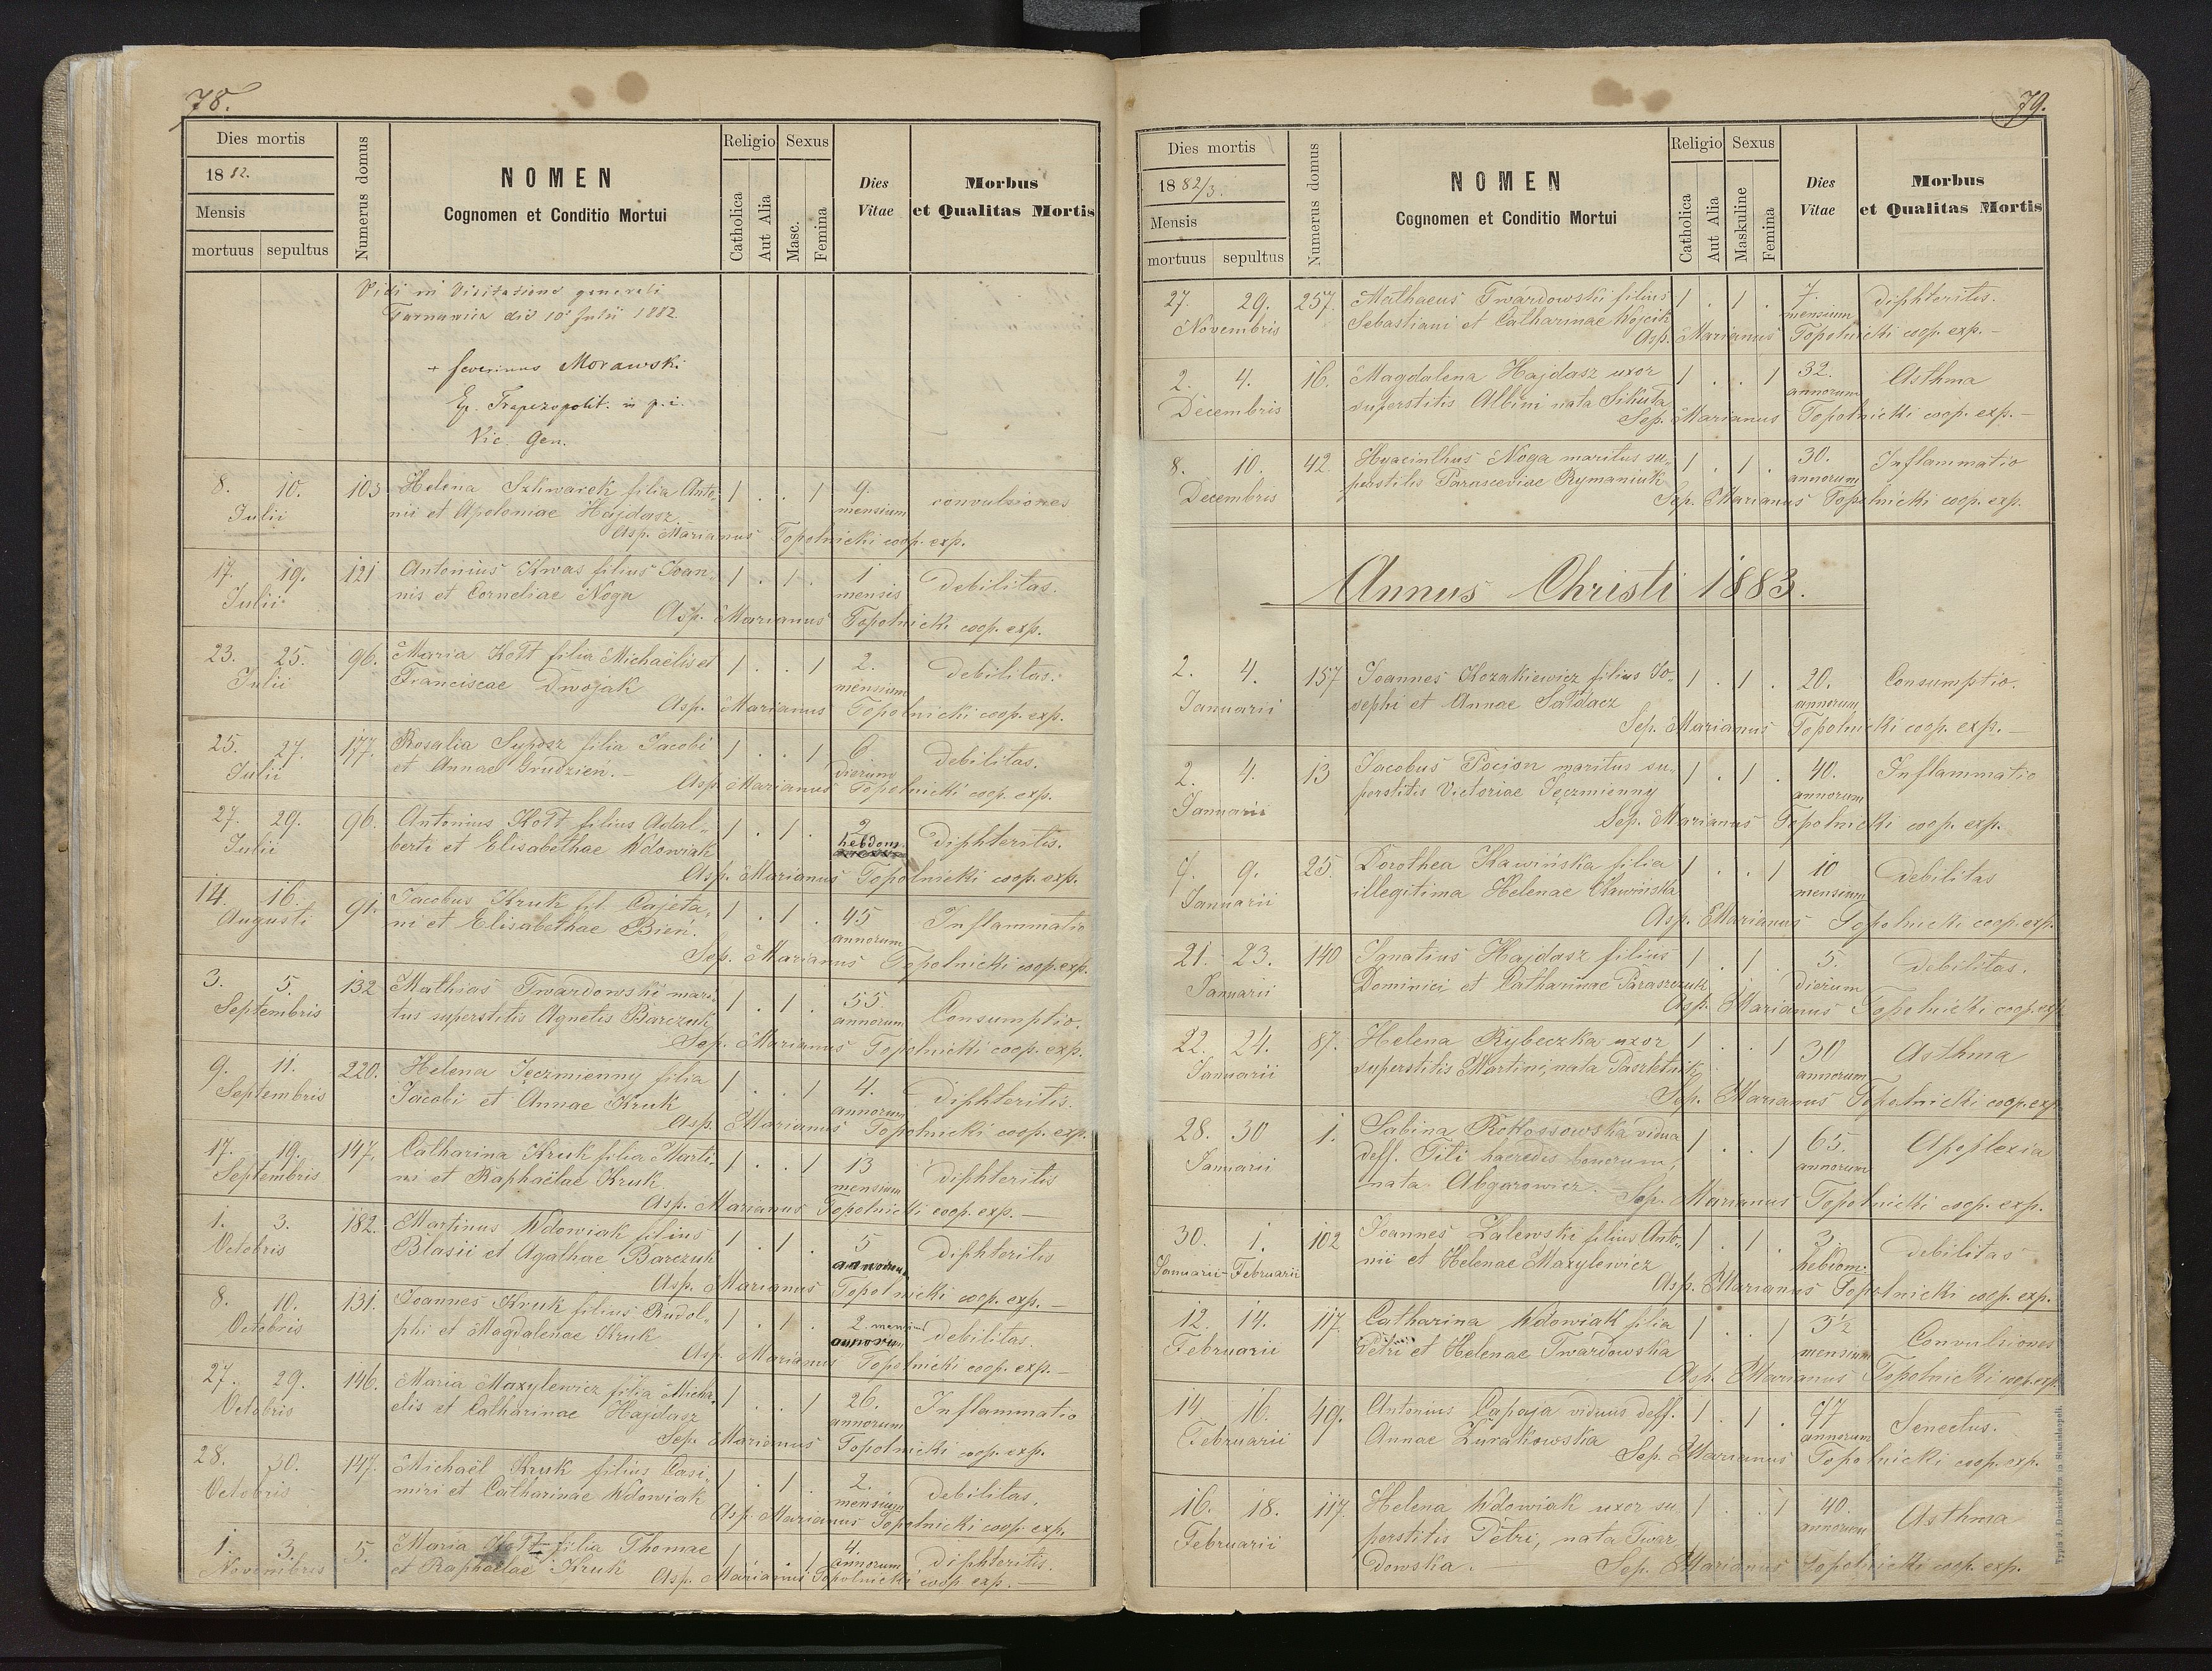 78.
Dies mortis
1882.
Mensis
mortuus sepultus
Numerus domus
NOMEN
Cognomen et Conditio Mortui
Religio
Catholica
Aut Alia
Sexus
Masc.
Femina
Dies
Vitae
Morbus
et Qualitas Mortis
Vidi in Visitatione generali
Turnaviae die 10 Julii 1882
+ Severinus Morawski
Ep. Trapezopolit. in p. i.
Vic. Gen.
8. 10. 103 Helena Szkwarek filia Anto- 1 . . 1 9. convulsiones
Julii nii et Apoloniae Hajdasz mensium
Asp. Marianus Topolnicki coop. exp.
17. 19. 121 Antonius Kwas filius Joan- 1 . 1 . 1 debilitas.
Julii nis et Corneliae Noga mensis
Asp. Marianus Topolnicki coop. exp.
23. 25. 96. Maria Kott filia Michaëlis et 1 . . 1 2. debilitas.
Julii Franciscae Dwojak mensium
Asp. Marianus Topolnicki coop. exp.
25. 27. 177. Rosalia Suposz filia Jacobi 1 . . 1 6 debilitas.
Julii et Annae Grudzień. - dierum
Asp. Marianus Topolnicki coop. exp.
27. 29. 96. Antonius Kott filius Adal- 1 . 1 . 2 diphteritis.
Julii berti et Elisabethae Wdowiak hebdom.
Asp. Marianus Topolnicki coop. exp.
14. 16. 91. Jacobus Kruk fil. Cajeta- 1 . 1 . 45 Inflammatio
Augusti ni et Elisabethae Bień. annorum
Sep. Marianus Topolnicki coop. exp.
3. 5. 132 Mathias Twardowski mari- 1 . 1 . 55 Consumptio.
Septembris tus superstitis Agnetis Barczuk annorum
Sep. Marianus Topolnicki coop. exp.
9. 11. 220. Helena Jęczmienny filia 1 . . 1 4. diphteritis.
Septembris Jacobi et Annae Kruk annorum
Asp. Marianus Topolnicki coop. exp.
17. 19. 147. Catharina Kruk filia Marti- 1 . . 1 13 diphteritis
Septembris ni et Raphaëlae Kruk mensium
Asp. Marianus Topolnicki coop. exp. -
1. 3. 182. Martinus Wdowiak filius 1 . 1 . 5 diphteritis
Octobris Blasii et Agathae Barczuk annorum
Asp. Marianus Topolnicki coop. exp. -
8. 10. 131. Joannes Kruk filius Rudol- 1 . 1 . 2. debilitas.
Octobris phi et Magdalenae Kruk annorum
Asp. Marianus Topolnicki coop. exp. -
27. 29. 146. Maria Maxylewicz filia Micha- 1 . . 1 26. Inflammatio
Octobris elis et Catharinae Hajdasz annorum
Sep. Marianus Topolnicki coop. exp.
28. 30. 147. Michaël Kruk filius Casi- 1 . 1 . 2. debilitas.
Octobris miri et Catharinae Wdowiak mensium
Asp. Marianus Topolnicki coop. exp.
1. 3. 5. Maria Kott filia Thomae 1 . . 1 4. diphteritis.
Novembris et Raphaëlae Kruk annorum
Asp. Marianus Topolnicki coop. exp. -
79.
Dies mortis
1882/3.
Mensis
mortuus sepultus
Numerus domus
NOMEN
Cognomen et Conditio Mortui
Religio
Catholica
Aut Alia
Sexus
Maskuline
Femina
Dies
Vitae
Morbus
et Qualitas Mortis
27. 29. 257. Mathaeus Twardowski filius 1 . 1 . 7. diphteritis.
Novembris Sebastiani et Catharinae Wojcik mensium
Asp. Marianus Topolnicki coop. exp. -
2. 4. 16. Magdalena Hajdasz uxor 1 . . 1 32. Asthma
Decembris superstitis Albini nata Sikuta annorum
Sep. Marianus Topolnicki coop. exp. -
8. 10. 42. Hyacinthus Noga maritus su- 1 . 1 . 30. Inflammatio
Decembris perstitis Parasceviae Rymaniuk annorum
Sep. Marianus Topolnicki coop. exp.
Annus Christi 1883.
2. 4. 157 Joannes Kozakiewicz filius Jo- 1 . 1 . 20. Consumptio.
Januarii sephi et Annae Sałdacz annorum
Sep. Marianus Topolnicki coop. exp. -
2. 4. 13 Jacobus Pocion maritus su- 1 . 1 . 40. Inflammatio
Januarii perstitis Victoriae Jęczmienny annorum
Sep. Marianus Topolnicki coop. exp.
7. 9. 25. Dorothea Kawińska filia 1 . . 1 10 debilitas
Januarii illegitima Helenae Kawińska mensium
Asp. Marianus Topolnicki coop. exp.
21. 23. 140 Ignatius Hajdasz filius 1 . 1 5. debilitas.
Januarii Dominici et Catharinae Paraszczuk dierum
Asp. Marianus Topolnicki coop. exp.
22. 24. 87. Helena Rybeczka uxor 1 . . 1 30 Asthma
Januarii superstitis Martini, nata Paszletnik annorum
Sep. Marianus Topolnicki coop. exp.
28. 30 1. Sabina Rottossowska vidua 1 . . 1 65. Apoplexia
Januarii deff. Titi haeredis bonorum, annorum
nata Abgarowicz. Sep. Marianus Topolnicki coop. exp.
30. 1. 102 Joannes Zalewski filius Anto- 1 . 1 . 3. debilitas
Januarii - Februarii nii et Helenae Maxylewicz hebdom.
Asp. Marianus Topolnicki coop. exp.
12. 14. 117. Catharina Wdowiak filia 1 . . 1 3½ Convulsiones
Februarii Petri et Helenae Twardowska mensium
Asp. Marianus Topolnicki coop. exp.
14 16. 49. Antonius Capaja viduus deff. 1 . 1 . 77 Senectus.
Februarii Annae Żurakowska annorum
Sep. Marianus Topolnicki coop. exp.
16. 18. 117. Helena Wdowiak uxor su 1 . . 1 40. Asthma
Februarii perstitis Petri, nata Twar annorum
dowska. Sep. Marianus Topolnicki coop. exp.
Typis J. Dankiewicz in Stanislopoli.